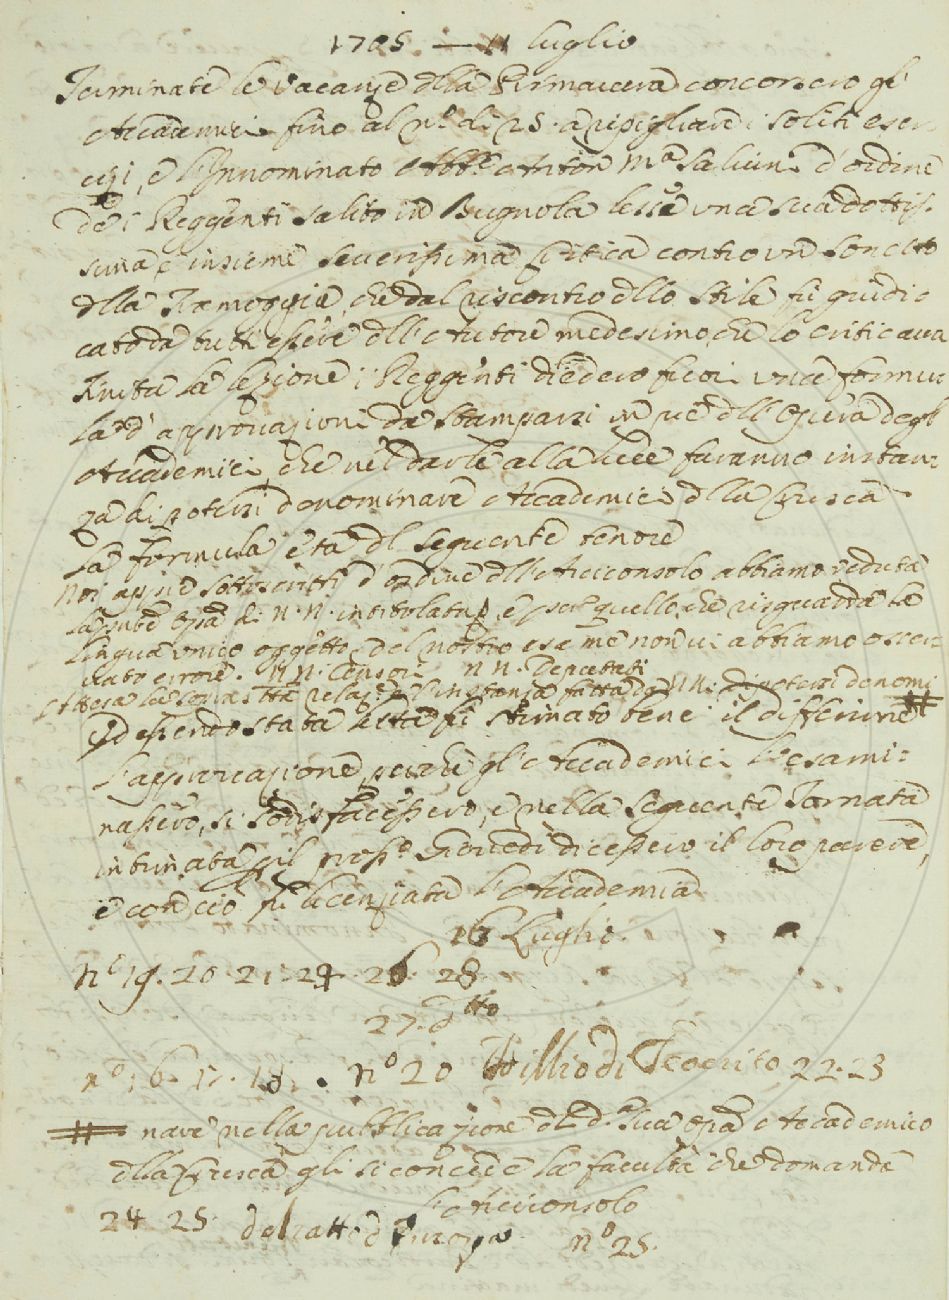 1705 — 11 luglio
Terminate le Vacanze dlla Primavera concorsero gl'
Accademici fino al n.° di 25. a ripigliare i soliti eser-
cizi, e l'Innominato Abb.e Anton M.a Salvini d'ordine
de i Reggenti salito in Bugnola lesse una sua dottis-
sima e insieme severissima Critica contro un Sonetto
dlla Tramoggia, che dal riscontro dllo stile fu giudi-
cato da tutti essere dll'Autore medesimo, che lo criticava
Finita la lezione i Reggenti diedero fuori una formu-
la d'approvazione da stamparsi in piè dll'Opera degl'
Accademici, che nel darle alla luce faranno instan-
za di potersi denominare Accademici dlla Crusca
La formula è ta dl seguente tenore
Noi appiè sottoscritti d'ordine dll'Arciconsolo abbiamo veduta
la opa di N.N. intitolata e quello, che risguarda la
lingua unico oggetto del nostro esame non vi abbiamo osser-
vato errore. N.N. Censori N N. Deputati
Attesa la sopras.tta relaz.e l'instanza fatta da N.N. di potersi denomi #
Ed essendo stata letta fu stimato bene il differirne
l'approvazione, perchè gl'Accademici l'esami-
nassero, si sodisfacessero, e nella seguente Tornata
intimata pil pross.o Giovedì dicessero il loro parere,
e con ciò fu licenziata l'Accademia
16 Luglio.
n.° 19. 20. 21. 24. 26. 28.
27. Dtto
n° 16. 17. 18. n° 20 Idillio di Teocrito 22. 23
# nare nella pubblicazione dl d.a sua opa Accademico
dlla Crusca gli si concede la facultà che domanda
L'Arciconsolo
24 25. del ratto d'Europa n° 25.